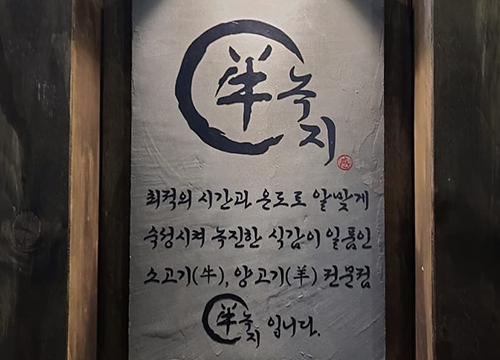 녹지
최적의 시간과 온도로 알맞게
숙성시켜 녹진한 식감이 일품인
소고기(牛), 양고기(羊) 전문점
녹지 입니다.